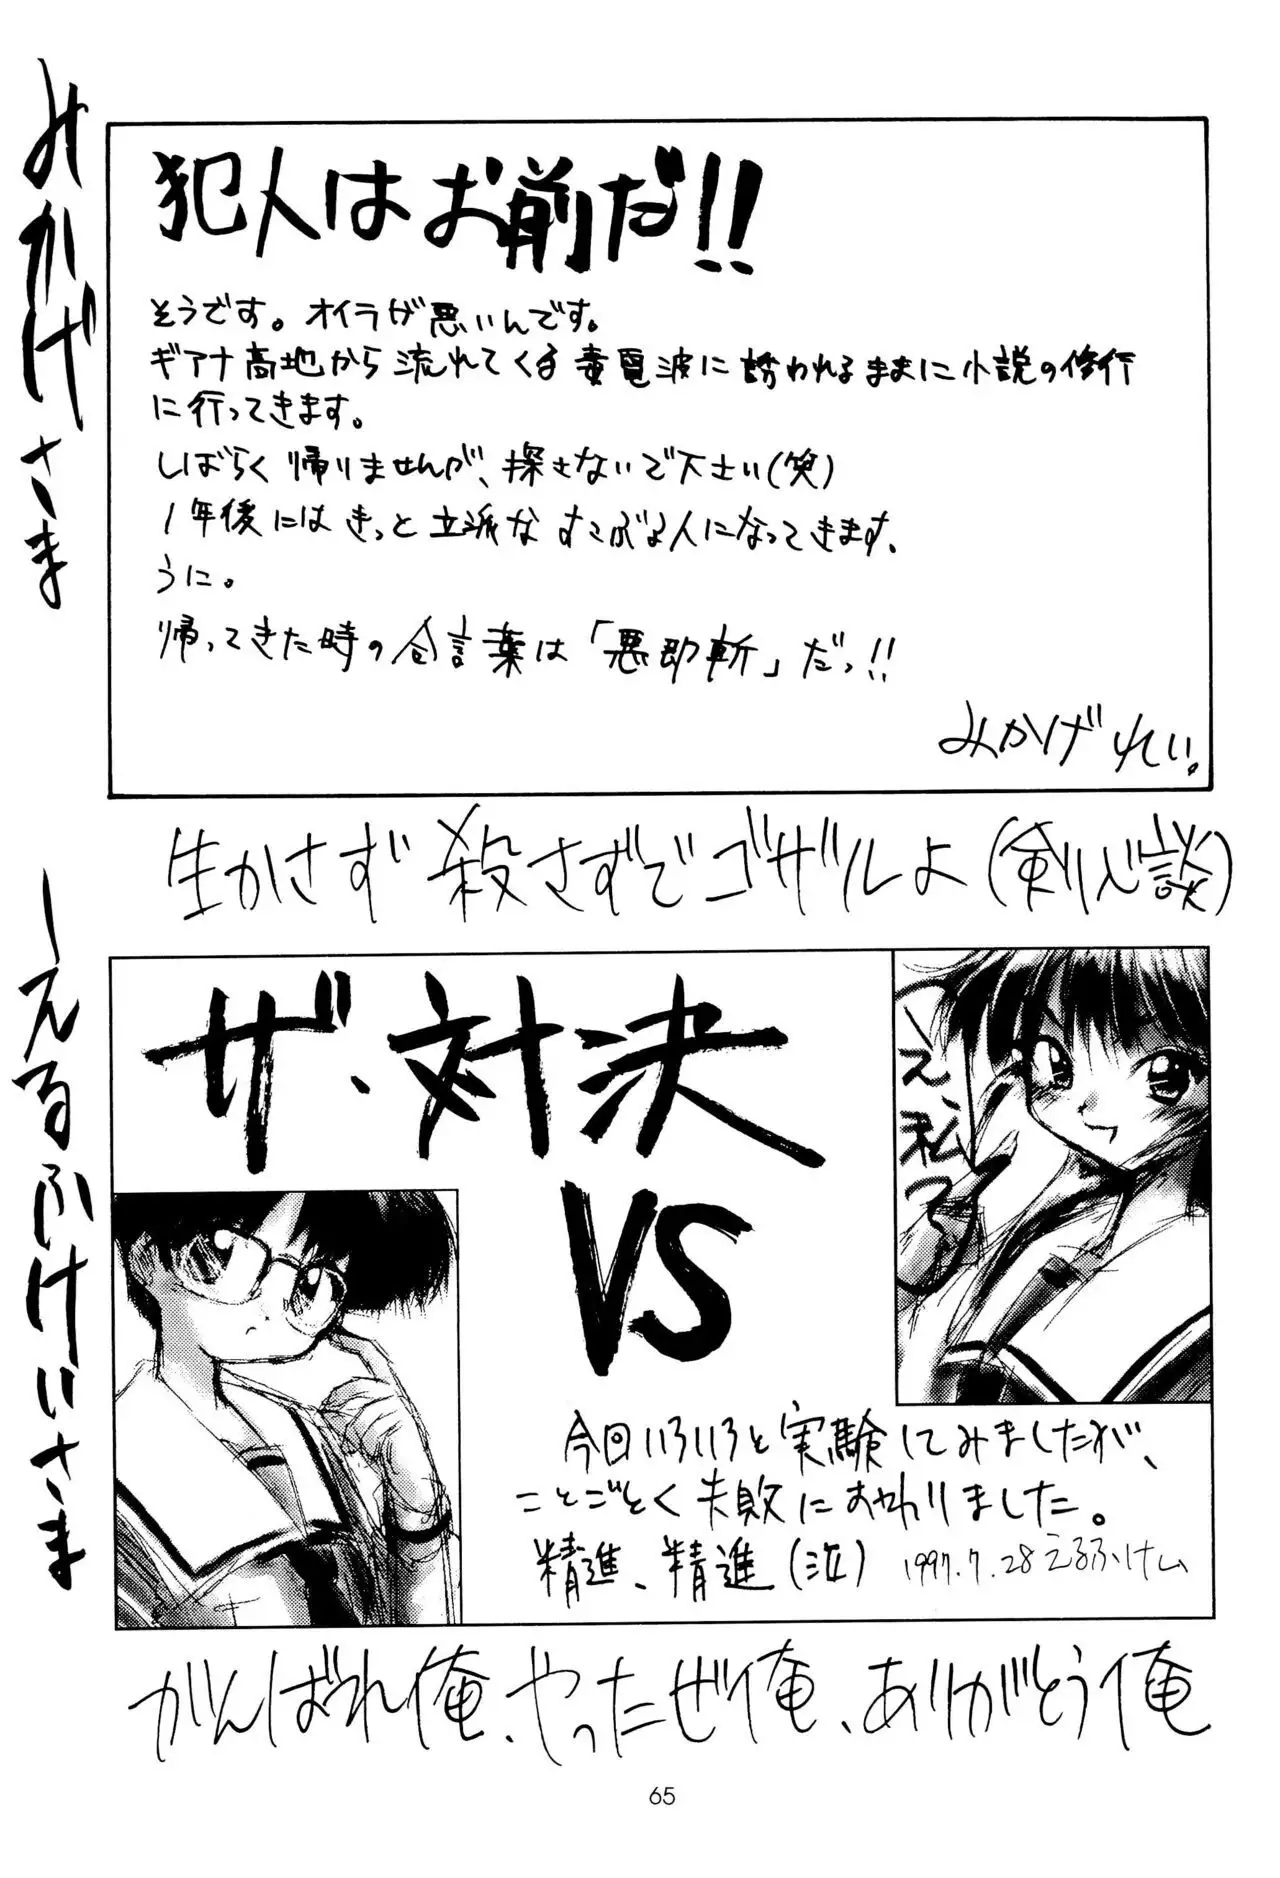 みかげさま
犯人はお前だ!!
そうです。オイラが悪いんです。
ギアナ高地から流れてくる毒電波に誘われるままに小説の修行
に行ってきます。
しばらく帰りませんが、探さないで下さい(笑)
1年後にはきっと立派なすこぶる人になってきます。
うに。
帰ってきた時の合言葉は「悪即斬」だっ!!
みかげれい。
生かさず殺さずでゴザルよ(剣心談)
えるふけいさま
ザ・対決
VS
え、私っ
今回いろいろと実験してみましたが、
ことごとく失敗におわりました。
精進、精進(泣) 1997.7.28 えるふけい
がんばれ俺、やったぜ俺、ありがとう俺
65